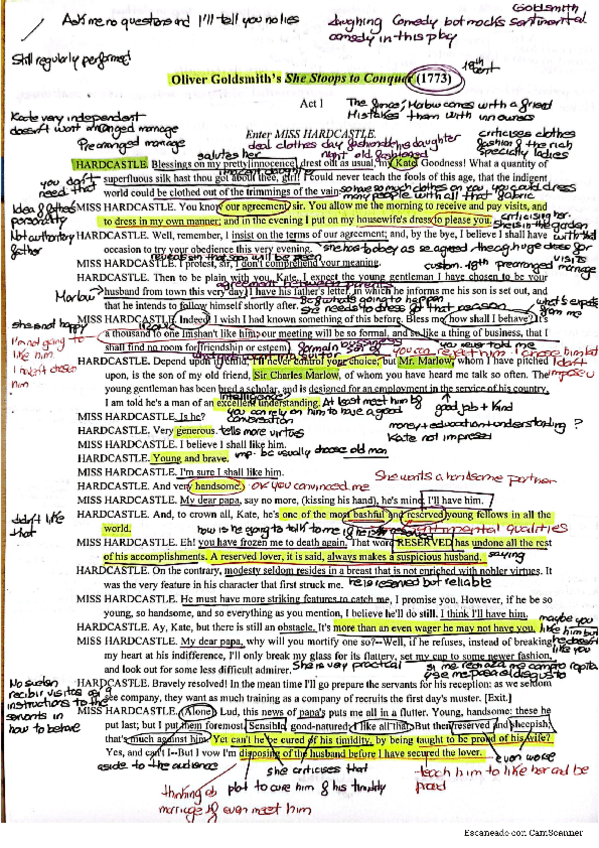 Goldsmith
Ask me no questions and I'll tell you no lies
laughing Comedy but mocks sentimental
comedy in this play
Still regularly performed
18th cent
Oliver Goldsmith's She Stoops to Conquer (1773)
Act I
Kate very independent
doesn't want arranged marriage
Mistakes them with inn owners
Prearranged marriage
Enter MISS HARDCASTLE.
criticises clothes
fashion & the rich
HARDCASTLE. Blessings on my pretty innocence, drest out as usual, my Kate. Goodness! What a quantity of
superfluous silk hast thou got about thee, girl! I could never teach the fools of this age, that the indigent
world could be clothed out of the trimmings of the vain.
you don't
need that
MISS HARDCASTLE. You know our agreement, sir. You allow me the morning to receive and pay visits, and
to dress in my own manner; and in the evening I put on my housewife's dress to please you.
Idea of father's
personality
criticising her.
She is in the garden
Not authority
father
HARDCASTLE. Well, remember, I insist on the terms of our agreement; and, by the bye, I believe I shall have
occasion to try your obedience this very evening.
MISS HARDCASTLE. I protest, sir, I don't comprehend your meaning.
custom 18th prearranged marriage
HARDCASTLE. Then to be plain with you, Kate, I expect the young gentleman I have chosen to be your
husband from town this very day. I have his father's letter, in which he informs me his son is set out, and
that he intends to follow himself shortly after.
agreement between parents
Marlow
she is not happy
MISS HARDCASTLE. Indeed! I wish I had known something of this before. Bless me, how shall I behave? It's
a thousand to one I shan't like him; our meeting will be so formal, and so like a thing of business, that I
shall find no room for friendship or esteem.
I'm not going to
like him
I didn't chosen
him
you never told me
HARDCASTLE. Depend upon it, child, I'll never control your choice; but Mr. Marlow, whom I have pitched
upon, is the son of my old friend, Sir Charles Marlow, of whom you have heard me talk so often. The
young gentleman has been bred a scholar, and is designed for an employment in the service of his country.
I am told he's a man of an excellent understanding.
Intelligence?
good job + kind
MISS HARDCASTLE. Is he?
you can rely on him to have a good
conversation
HARDCASTLE. Very generous. tells more virtues
money + education + understanding?
MISS HARDCASTLE. I believe I shall like him.
Kate not impressed
HARDCASTLE. Young and brave. imp. bc usually choose old man
MISS HARDCASTLE. I'm sure I shall like him.
HARDCASTLE. And very handsome. ok you convinced me
She wants a handsome partner
MISS HARDCASTLE. My dear papa, say no more, (kissing his hand), he's mine; I'll have him.
didn't like
that
HARDCASTLE. And, to crown all, Kate, he's one of the most bashful and reserved young fellows in all the
world.
sentimental qualities
MISS HARDCASTLE. Eh! you have frozen me to death again. That word RESERVED has undone all the rest
of his accomplishments. A reserved lover, it is said, always makes a suspicious husband. saying
HARDCASTLE. On the contrary, modesty seldom resides in a breast that is not enriched with nobler virtues. It
was the very feature in his character that first struck me. he is reserved but reliable
MISS HARDCASTLE. He must have more striking features to catch me, I promise you. However, if he be so
young, so handsome, and so everything as you mention, I believe he'll do still. I think I'll have him.
HARDCASTLE. Ay, Kate, but there is still an obstacle. It's more than an even wager he may not have you.
maybe you
like him but
he doesn't
like you
MISS HARDCASTLE. My dear papa, why will you mortify one so?—Well, if he refuses, instead of breaking
my heart at his indifference, I'll only break my glass for its flattery, set my cap to some newer fashion,
and look out for some less difficult admirer.
She is very practical
No suelen
recibir visitas
instructions to the
servants in
how to behave
HARDCASTLE. Bravely resolved! In the mean time I'll go prepare the servants for his reception: as we seldom
see company, they want as much training as a company of recruits the first day's muster. [Exit.]
MISS HARDCASTLE. (Alone) Lud, this news of papa's puts me all in a flutter. Young, handsome: these he
put last; but I put them foremost. Sensible, good-natured; I like all that. But then reserved and sheepish,
that's much against him. Yet can't he be cured of his timidity, by being taught to be proud of his wife?
Yes, and can't I—But I vow I'm disposing of the husband before I have secured the lover.
aside to the audience
she criticises that
even worse
plot to cure him & his timidity
teach him to like her and be
proud
thinking of
marriage if even meet him
Escaneado con CamScanner